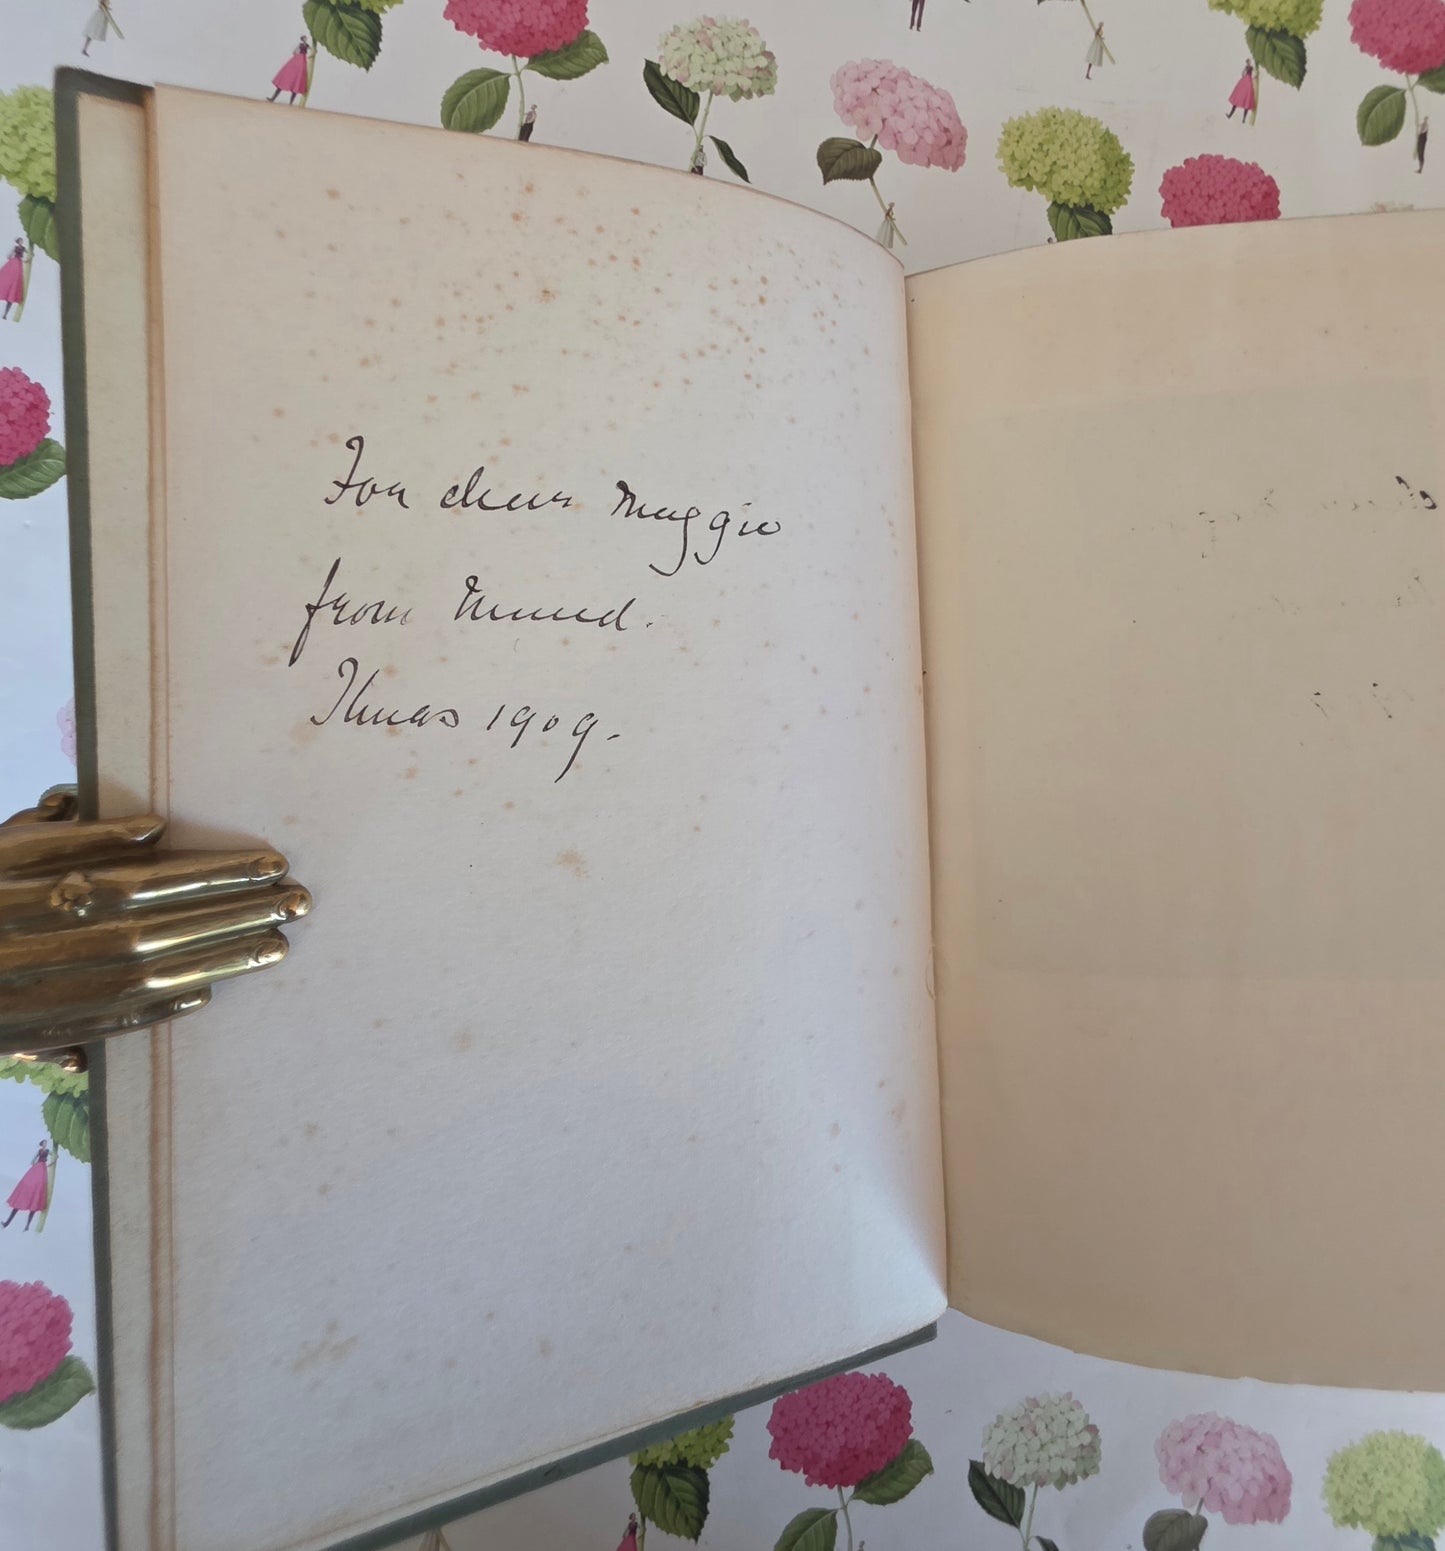 For dear Maggie
from Maud.
Xmas 1909.